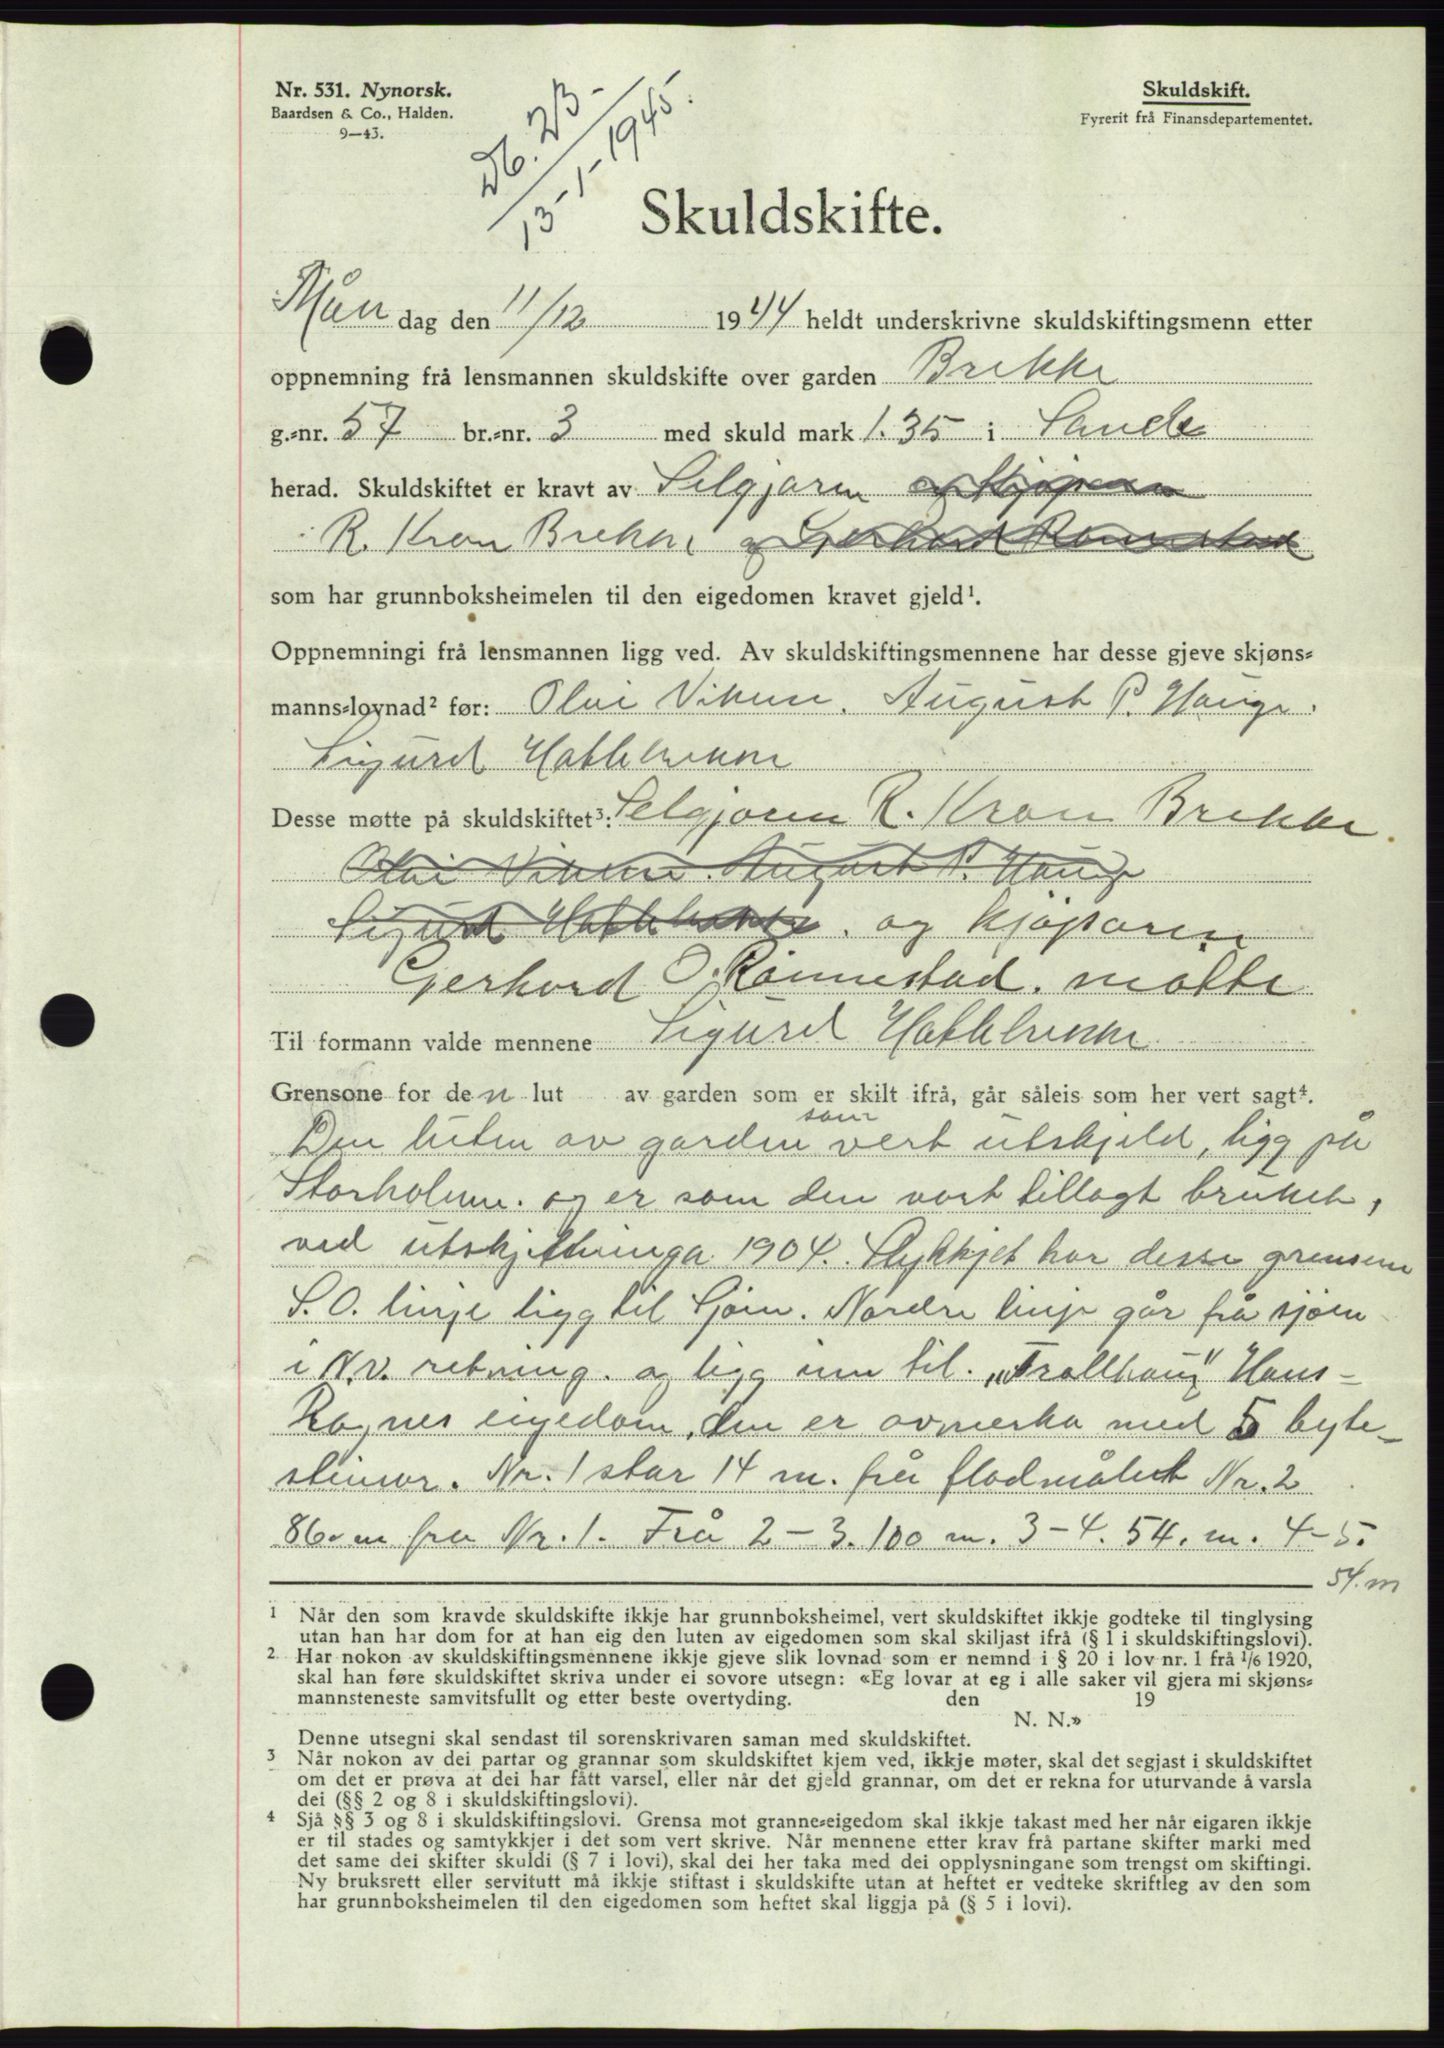 Nr. 531. Nynorsk.
Baardsen & Co., Halden.
9—43.
Skuldskift.
Fyrerit frå Finansdepartementet.
Db. 23-
13-1-1945.
Skuldskifte.
Mån dag den 11/12 1944 heldt underskrivne skuldskiftingsmenn etter
oppnemning frå lensmannen skuldskifte over garden Brekke
g.=nr. 57 br.=nr. 3 med skuld mark 1.35 i Sande
herad. Skuldskiftet er kravt av Selgjaren og Kjøparen
R. Kron Brekke og Gerhard Rønnestad
som har grunnboksheimelen til den eigedomen kravet gjeld¹.
Oppnemningi frå lensmannen ligg ved. Av skuldskiftingsmennene har desse gjeve skjøns=
manns=lovnad² før: Olai Viken. August P. Hauge.
Sigurd Hatlebrekke
Desse møtte på skuldskiftet³: Selgjaren R. Kron Brekke.
Olai Viken. August P. Hauge
Sigurd Hatlebrekke. og kjøparen
Gerhard O. Rønnestad. møtte
Til formann valde mennene Sigurd Hatlebrekke.
Grensone for den lut av garden som er skilt ifrå, går såleis som her vert sagt⁴.
Den luten av garden som vert utskjeld, ligg på
Storholmen. og er som den vart tillagt bruket,
ved utskjeftninga 1904. Stykkjet har desse grensene
S.O. linje ligg til Sjøen. Nordre linje går frå sjøen
i N.v. retning. og ligg inn til. „Trollhaug" Hans-
Ragnes eigedom, den er avmerka med 5 byte-
steinar. Nr. 1 står 14 m. frå flodmålet Nr. 2
86. m fra Nr. 1. Frå 2 – 3. 100 m. 3 – 4. 54. m. 4 – 5.
54. m
1 Når den som kravde skuldskifte ikkje har grunnboksheimel, vert skuldskiftet ikkje godteke til tinglysing
utan han har dom for at han eig den luten av eigedomen som skal skiljast ifrå (§ 1 i skuldskiftingslovi).
2 Har nokon av skuldskiftingsmennene ikkje gjeve slik lovnad som er nemnd i § 20 i lov nr. 1 frå 1/6 1920,
skal han føre skuldskiftet skriva under ei sovore utsegn: «Eg lovar at eg i alle saker vil gjera mi skjøns=
mannsteneste samvitsfullt og etter beste overtyding. den 19
N. N.»
Denne utsegni skal sendast til sorenskrivaren saman med skuldskiftet.
3 Når nokon av dei partar og grannar som skuldskiftet kjem ved, ikkje møter, skal det segjast i skuldskiftet
om det er prøva at dei har fått varsel, eller når det gjeld grannar, om det er rekna for uturvande å varsla
dei (§§ 2 og 8 i skuldskiftingslovi).
4 Sjå §§ 3 og 8 i skuldskiftingslovi. Grensa mot granne=eigedom skal ikkje takast med her når eigaren ikkje
er til stades og samtykkjer i det som vert skrive. Når mennene etter krav frå partane skifter marki med
det same dei skifter skuldi (§ 7 i lovi), skal dei her taka med dei opplysningane som trengst om skiftingi.
Ny bruksrett eller servitutt må ikkje stiftast i skuldskifte utan at heftet er vedteke skriftleg av den som
har grunnboksheimelen til den eigedomen som heftet skal liggja på (§ 5 i lovi).